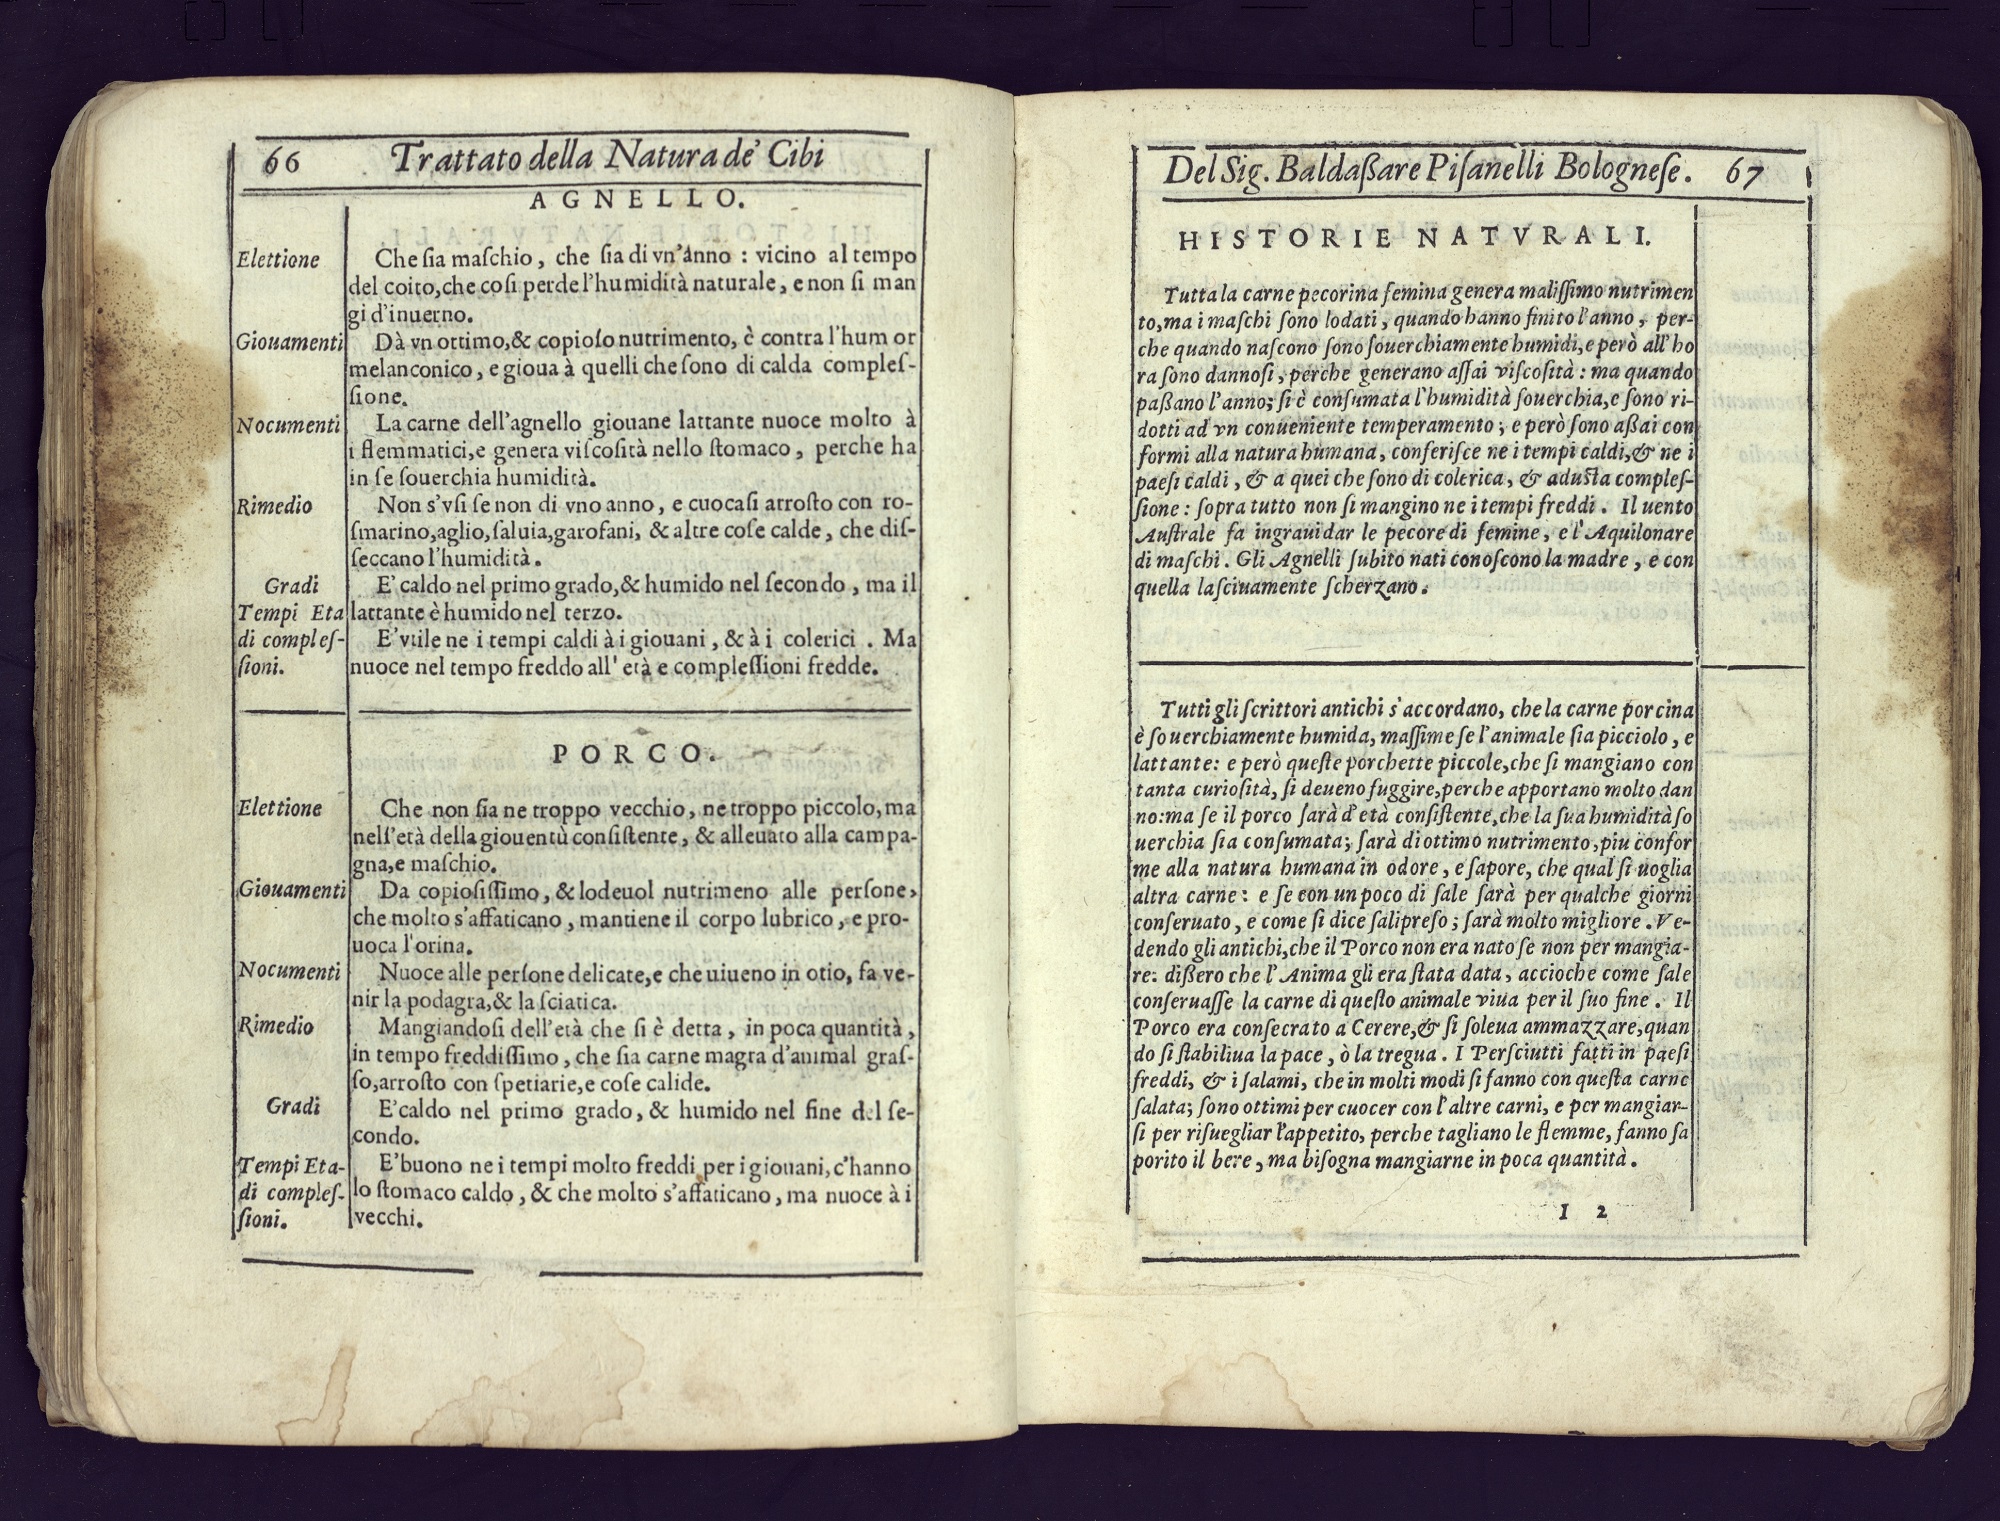 66 Trattato della Natura de' Cibi
AGNELLO.
Elettione
Che sia maschio, che sia di vn'anno : vicino al tempo
del coito, che cosi perde l'humidità naturale, e non si man
gi d'inuerno.
Giouamenti
Dà vn ottimo, & copioso nutrimento, è contra l'hum or
melanconico, e gioua à quelli che sono di calda comples-
sione.
Nocumenti
La carne dell'agnello giouane lattante nuoce molto à
i flemmatici, e genera viscosità nello stomaco, perche ha
in se souerchia humidità.
Rimedio
Non s'vsi se non di vno anno, e cuocasi arrosto con ro-
smarino, aglio, saluia, garofani, & altre cose calde, che dis-
seccano l'humidità.
Gradi
E' caldo nel primo grado, & humido nel secondo, ma il
lattante è humido nel terzo.
Tempi Eta
di comples-
sioni.
E' vtile ne i tempi caldi à i giouani, & à i colerici. Ma
nuoce nel tempo freddo all' età e complessioni fredde.
PORCO.
Elettione
Che non sia ne troppo vecchio, ne troppo piccolo, ma
nell'età della giouentù consistente, & alleuato alla campa-
gna, e maschio.
Giouamenti
Da copiosissimo, & lodeuol nutrimeno alle persone,
che molto s'affaticano, mantiene il corpo lubrico, e pro-
uoca l'orina.
Nocumenti
Nuoce alle persone delicate, e che uiueno in otio, fa ve-
nir la podagra, & la sciatica.
Rimedio
Mangiandosi dell'età che si è detta, in poca quantità,
in tempo freddissimo, che sia carne magra d'animal gras-
so, arrosto con spetiarie, e cose calide.
Gradi
E' caldo nel primo grado, & humido nel fine del se-
condo.
Tempi Eta-
di comples-
sioni.
E' buono ne i tempi molto freddi per i giouani, c'hanno
lo stomaco caldo, & che molto s'affaticano, ma nuoce à i
vecchi.
Del Sig. Baldaßare Pisanelli Bolognese. 67
HISTORIE NATVRALI.
Tutta la carne pecorina femina genera malissimo nutrimen
to, ma i maschi sono lodati, quando hanno finito l'anno, per-
che quando nascono sono souerchiamente humidi, e però all' ho
ra sono dannosi, perche generano assai viscosità : ma quando
paßano l'anno; si è consumata l'humidità souerchia, e sono ri-
dotti ad vn conueniente temperamento; e però sono aßai con
formi alla natura humana, conferisce ne i tempi caldi, & ne i
paesi caldi, & a quei che sono di colerica, & adusta comples-
sione : sopra tutto non si mangino ne i tempi freddi. Il uento
Australe fa ingrauidar le pecore di femine, e l' Aquilonare
di maschi. Gli Agnelli subito nati conoscono la madre, e con
quella lasciuamente scherzano.
Tutti gli scrittori antichi s'accordano, che la carne porcina
è souerchiamente humida, massime se l'animale sia picciolo, e
lattante: e però queste porchette piccole, che si mangiano con
tanta curiosità, si deueno fuggire, perche apportano molto dan
no: ma se il porco sarà d' età consistente, che la sua humidità so
uerchia sia consumata; sarà di ottimo nutrimento, piu confor
me alla natura humana in odore, e sapore, che qual si uoglia
altra carne: e se con un poco di sale sarà per qualche giorni
conseruato, e come si dice salipreso; sarà molto migliore. Ve-
dendo gli antichi, che il Porco non era nato se non per mangia-
re: dißero che l' Anima gli era stata data, accioche come sale
conseruasse la carne di questo animale viua per il suo fine. Il
Porco era consecrato a Cerere, & si soleua ammazzare, quan
do si stabiliua la pace, ò la tregua. I Persciutti fatti in paesi
freddi, & i salami, che in molti modi si fanno con questa carne
salata; sono ottimi per cuocer con l'altre carni, e per mangiar-
si per risuegliar l'appetito, perche tagliano le flemme, fanno sa
porito il bere, ma bisogna mangiarne in poca quantità.
I 2